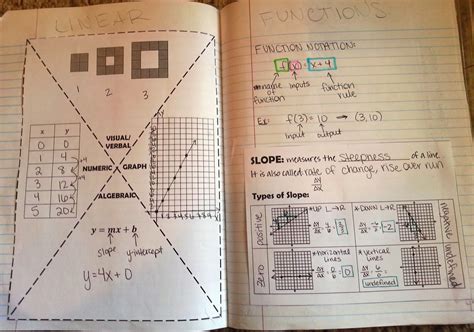 LINEAR
1 2 3
x y
0 0
1 4
2 8
3 12
4 16
5 20
+4
+4
VISUAL/
VERBAL
NUMERIC
GRAPH
ALGEBRAIC
y = mx + b
slope y-intercept
y=4x+0
FUNCTIONS
FUNCTION NOTATION:
f(x) = x+4
name
of
function
inputs
function
rule
Ex: f(3) = 10 → (3,10)
input output
SLOPE: measures the steepness of a line.
It is also called rate of change, rise over run
Δy
Δx
Types of Slope:
positive
*UP L→R
*DOWN L→R
negative
zero
*horizontal
lines
*vertical
lines
undefined
undefined